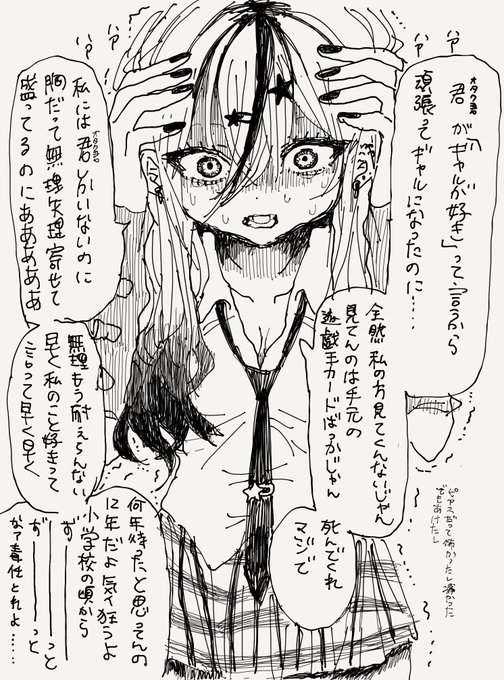 ハァ
ハァ
ハァ
ハァ
君が「ギャルが好き」って言うから
オタク君
頑張ってギャルになったのに……
全然私の方見てくんないじゃん
見てんのは手元の
遊戯王カードばっかじゃん
死んでくれ
マジで
ピアスだって怖かったし痛かった
でもあけたし
私には君しかいないのに
オタク君
胸だって無理矢理寄せて
盛ってるのにああああああ
無理もう耐えらんない
早く私のこと好きって
言って早く早く
何年待ったと思ってんの
12年だよ気狂うよ
小学校の頃から
ず———っと
ず———っと
なァ責任とれよ……